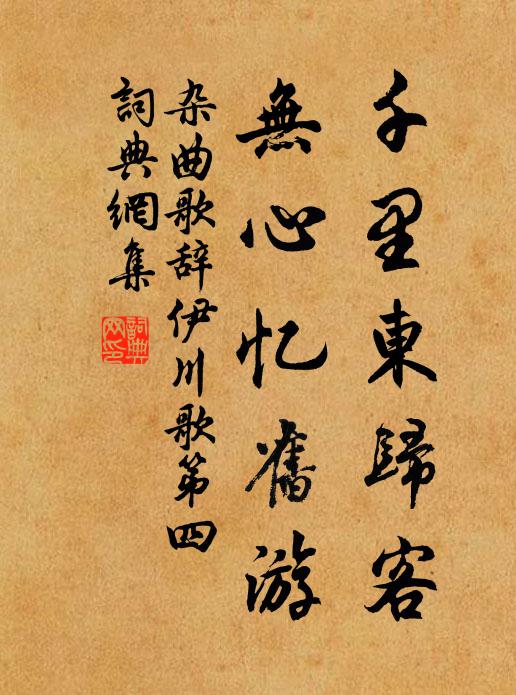 千里東歸客
無心忆舊游
杂曲歌辞伊川歌第四
詞典網集
詞典
网印